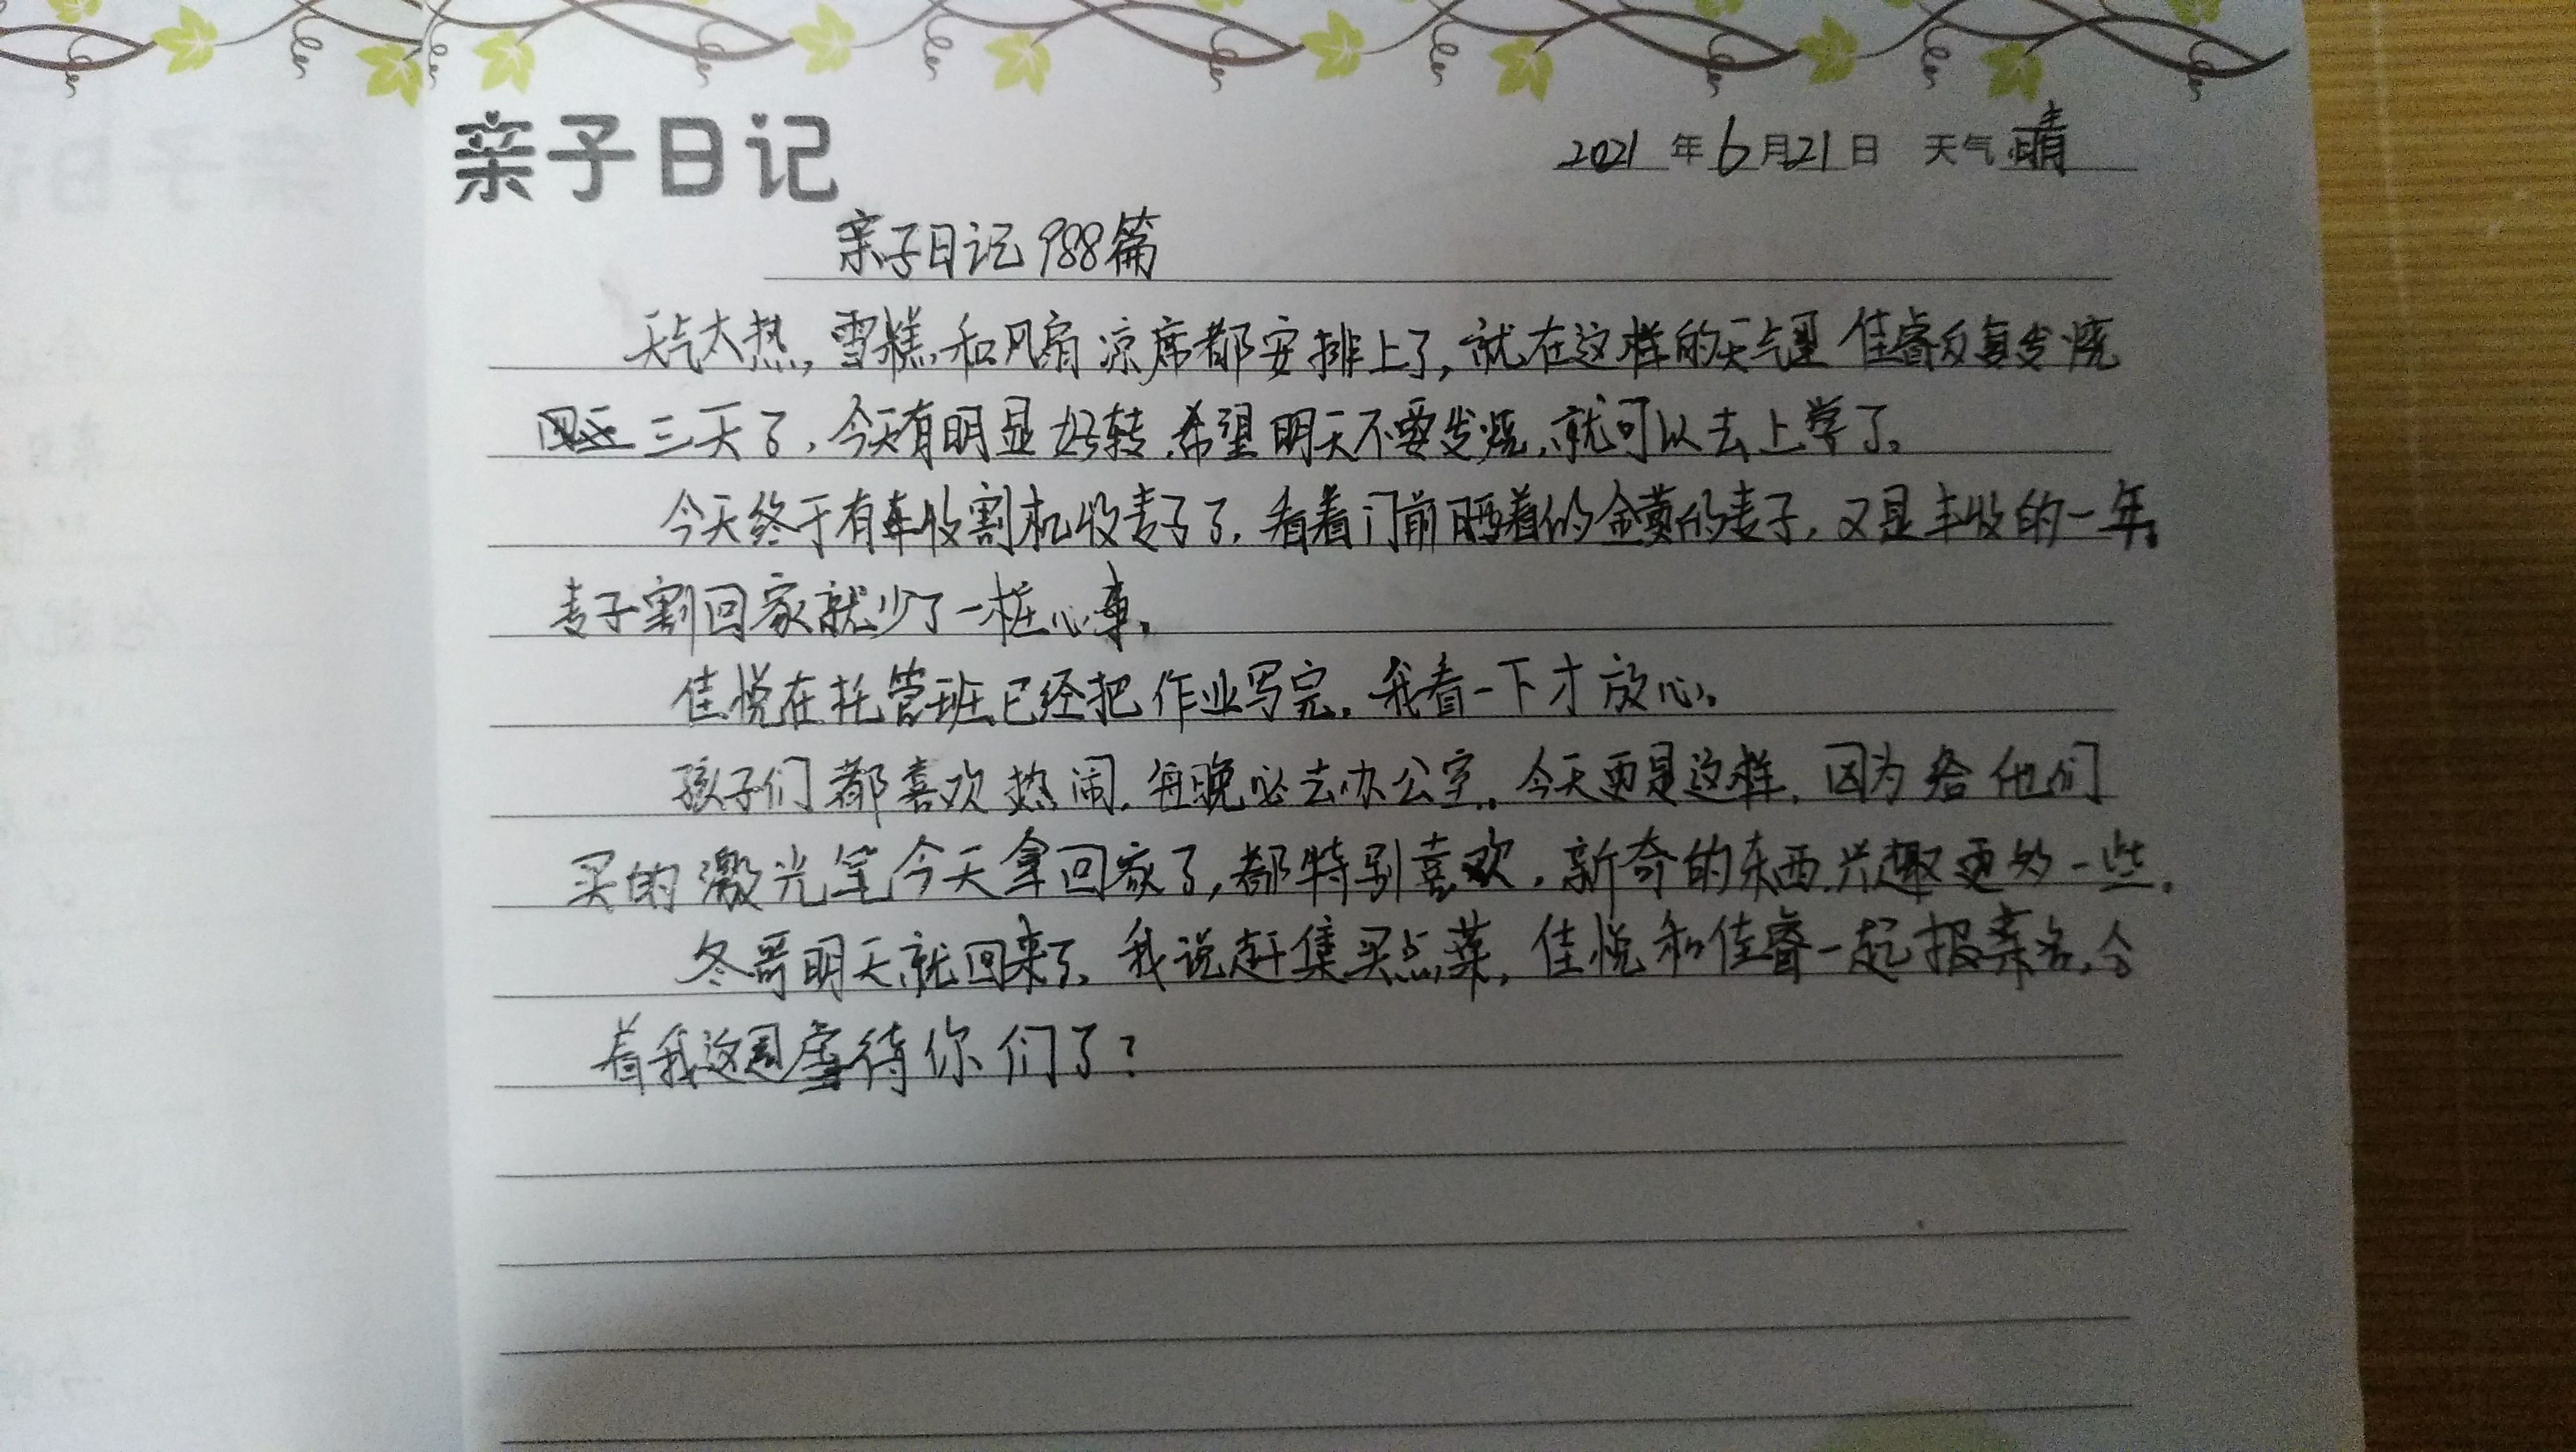 亲子日记
2021年6月21日 天气晴
亲子日记988篇
天气太热,雪糕和风扇凉席都安排上了,就在这样的天气里佳睿反复发烧
三天了,今天有明显好转,希望明天不要发烧,就可以去上学了。
今天终于有车收割机收麦子了,看着门前晒着的金黄的麦子,又是丰收的一年。
麦子割回家就少了一桩心事。
佳悦在托管班已经把作业写完,我看一下才放心。
孩子们都喜欢热闹,每晚必去办公室,今天更是这样,因为给他们
买的激光笔今天拿回家了,都特别喜欢,新奇的东西兴趣更多一些。
冬哥明天就回来了,我说赶集买点菜,佳悦和佳睿一起报菜名,合
着我这周虐待你们了?